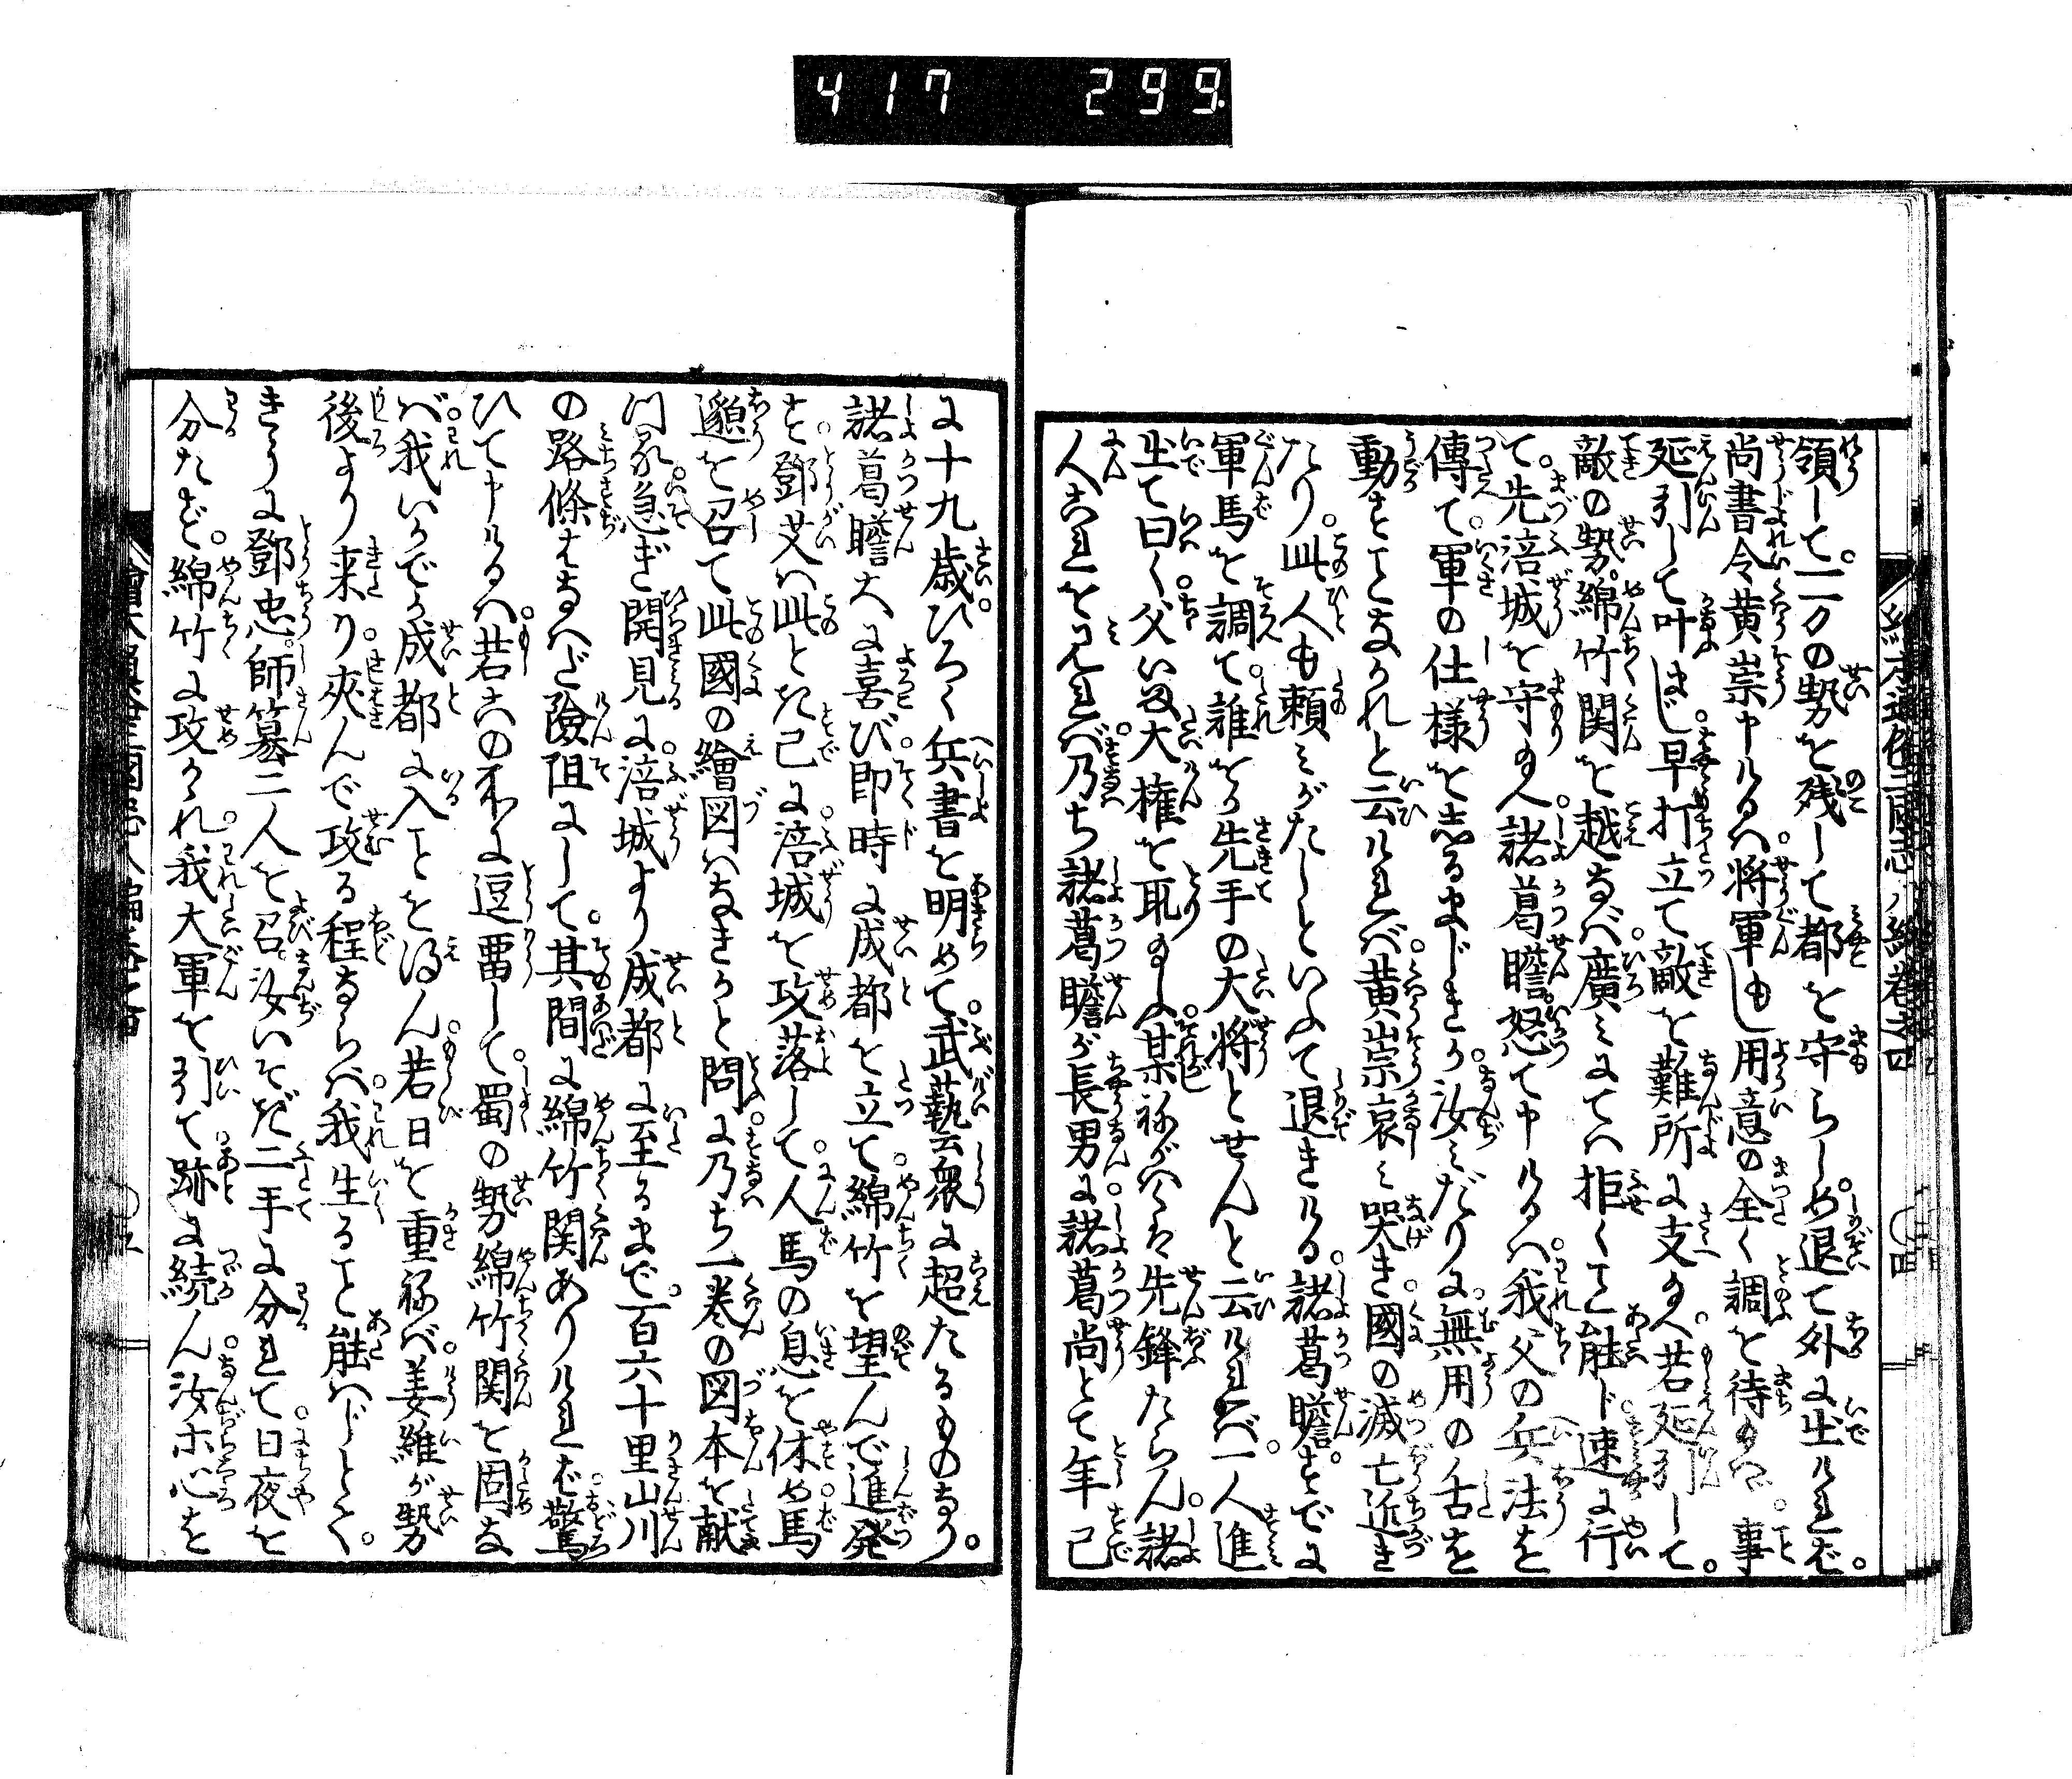 417 299.
領して。一万の勢を残して都を守らしめ退て外に出ければ。
尚書令黄崇申けるハ。将軍しも用意の全く調を待玉ハヾ。事
延引して叶まじ。早打立て敵を難所に支玉へ。若延引して。
敵の勢。綿竹関を越なバ。廣ミにてハ拒くこと能ハド速に行
て。先涪城を守玉へ。諸葛瞻。怒て申けるハ。我父の兵法を
傳て。軍の仕様を知るまじきか。汝ミだりに。無用の舌を
動すことなかれと云ければ。黄崇哀ミ哭き。國の滅亡近き
たり。此人も頼ミがたしといふて退きける。諸葛瞻。すでに
軍馬を調て。誰をか先手の大将とせんと云ければ。一人進
出て曰く。父ハ大権を取玉ふ。某ねがハくハ先鋒たらん。諸
人これを見れバ。乃ち諸葛瞻が長男に。諸葛尚とて年已
に十九歳。ひろく兵書を明めて。武藝衆に超たるものなり。
諸葛瞻大に喜び。即時に成都を立て。綿竹を望んで進発
す。鄧艾ハ此とき。已に涪城を攻落して。人馬の息を休め。馬
邈を召て。此國の繪図ハなきかと問に。乃ち一巻の図本を献
ず。急ぎ開見に。涪城より成都に至るまで。百六十里山川
の路條をなへど。險阻にして。其間に綿竹関ありければ。驚
ひて申けるハ。若この所に逗畱して。蜀の勢綿竹関を固な
バ。我いかでか成都に入ことを得ん。若日を重ねバ。姜維が勢
後より来り。夾んで攻る程ならバ。我生ること能ハじとて。
きうに鄧忠。師纂二人を召。汝いそぎ二手に分れて。日夜を
分たず。綿竹に攻かれ。我大軍を引て。跡に続ん。汝ホ心を